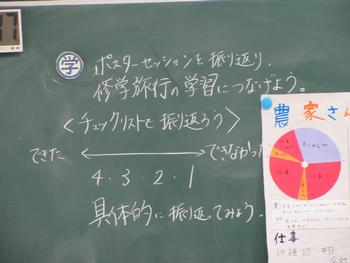 学 ポスターセッションを振り返り、
修学旅行の学習につなげよう。
〈チェックリストで振り返ろう〉
できた ⟷ できなかった
4・3・2・1
具体的に振り返ってみよう。
農家さん
仕事